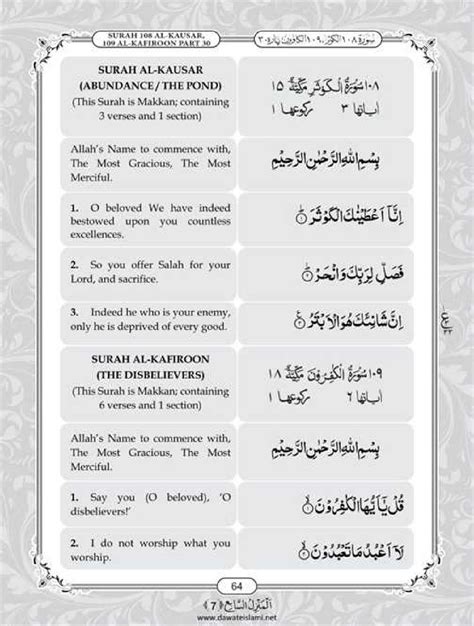 SURAH 108 AL-KAUSAR,
109 AL-KAFIROON PART 30
سورة ١٠٨ الكوثر، ١٠٩ الكافرون پاره ٣٠
SURAH AL-KAUSAR
(ABUNDANCE / THE POND)
(This Surah is Makkan; containing
3 verses and 1 section)
١٠٨ سُوْرَةُ الْكَوْثَرِ مَكِّيَّةٌ ١٥
اٰیاتها ٣ ركوعها ١
Allah's Name to commence with,
The Most Gracious, The Most
Merciful.
بِسْمِ اللّٰهِ الرَّحْمٰنِ الرَّحِيْمِ
1. O beloved We have indeed
bestowed upon you countless
excellences.
اِنَّاۤ اَعْطَيْنٰكَ الْكَوْثَرَ ۝١
2. So you offer Salah for your
Lord, and sacrifice.
فَصَلِّ لِرَبِّكَ وَانْحَرْ ۝٢
3. Indeed he who is your enemy,
only he is deprived of every good.
اِنَّ شَانِئَكَ هُوَ الْاَبْتَرُ ۝٣
SURAH AL-KAFIROON
(THE DISBELIEVERS)
(This Surah is Makkan; containing
6 verses and 1 section)
١٠٩ سُوْرَةُ الْكٰفِرُوْنَ مَكِّيَّةٌ ١٨
اٰیاتها ٦ ركوعها ١
Allah's Name to commence with,
The Most Gracious, The Most
Merciful.
بِسْمِ اللّٰهِ الرَّحْمٰنِ الرَّحِيْمِ
1. Say you (O beloved), 'O
disbelievers!'
قُلْ يٰۤاَيُّهَا الْكٰفِرُوْنَ ۝١
2. I do not worship what you
worship.
لَاۤ اَعْبُدُ مَا تَعْبُدُوْنَ ۝٢
64
اَلْمَنْزِلُ السَّابِع ﴿7﴾
www.dawateislami.net